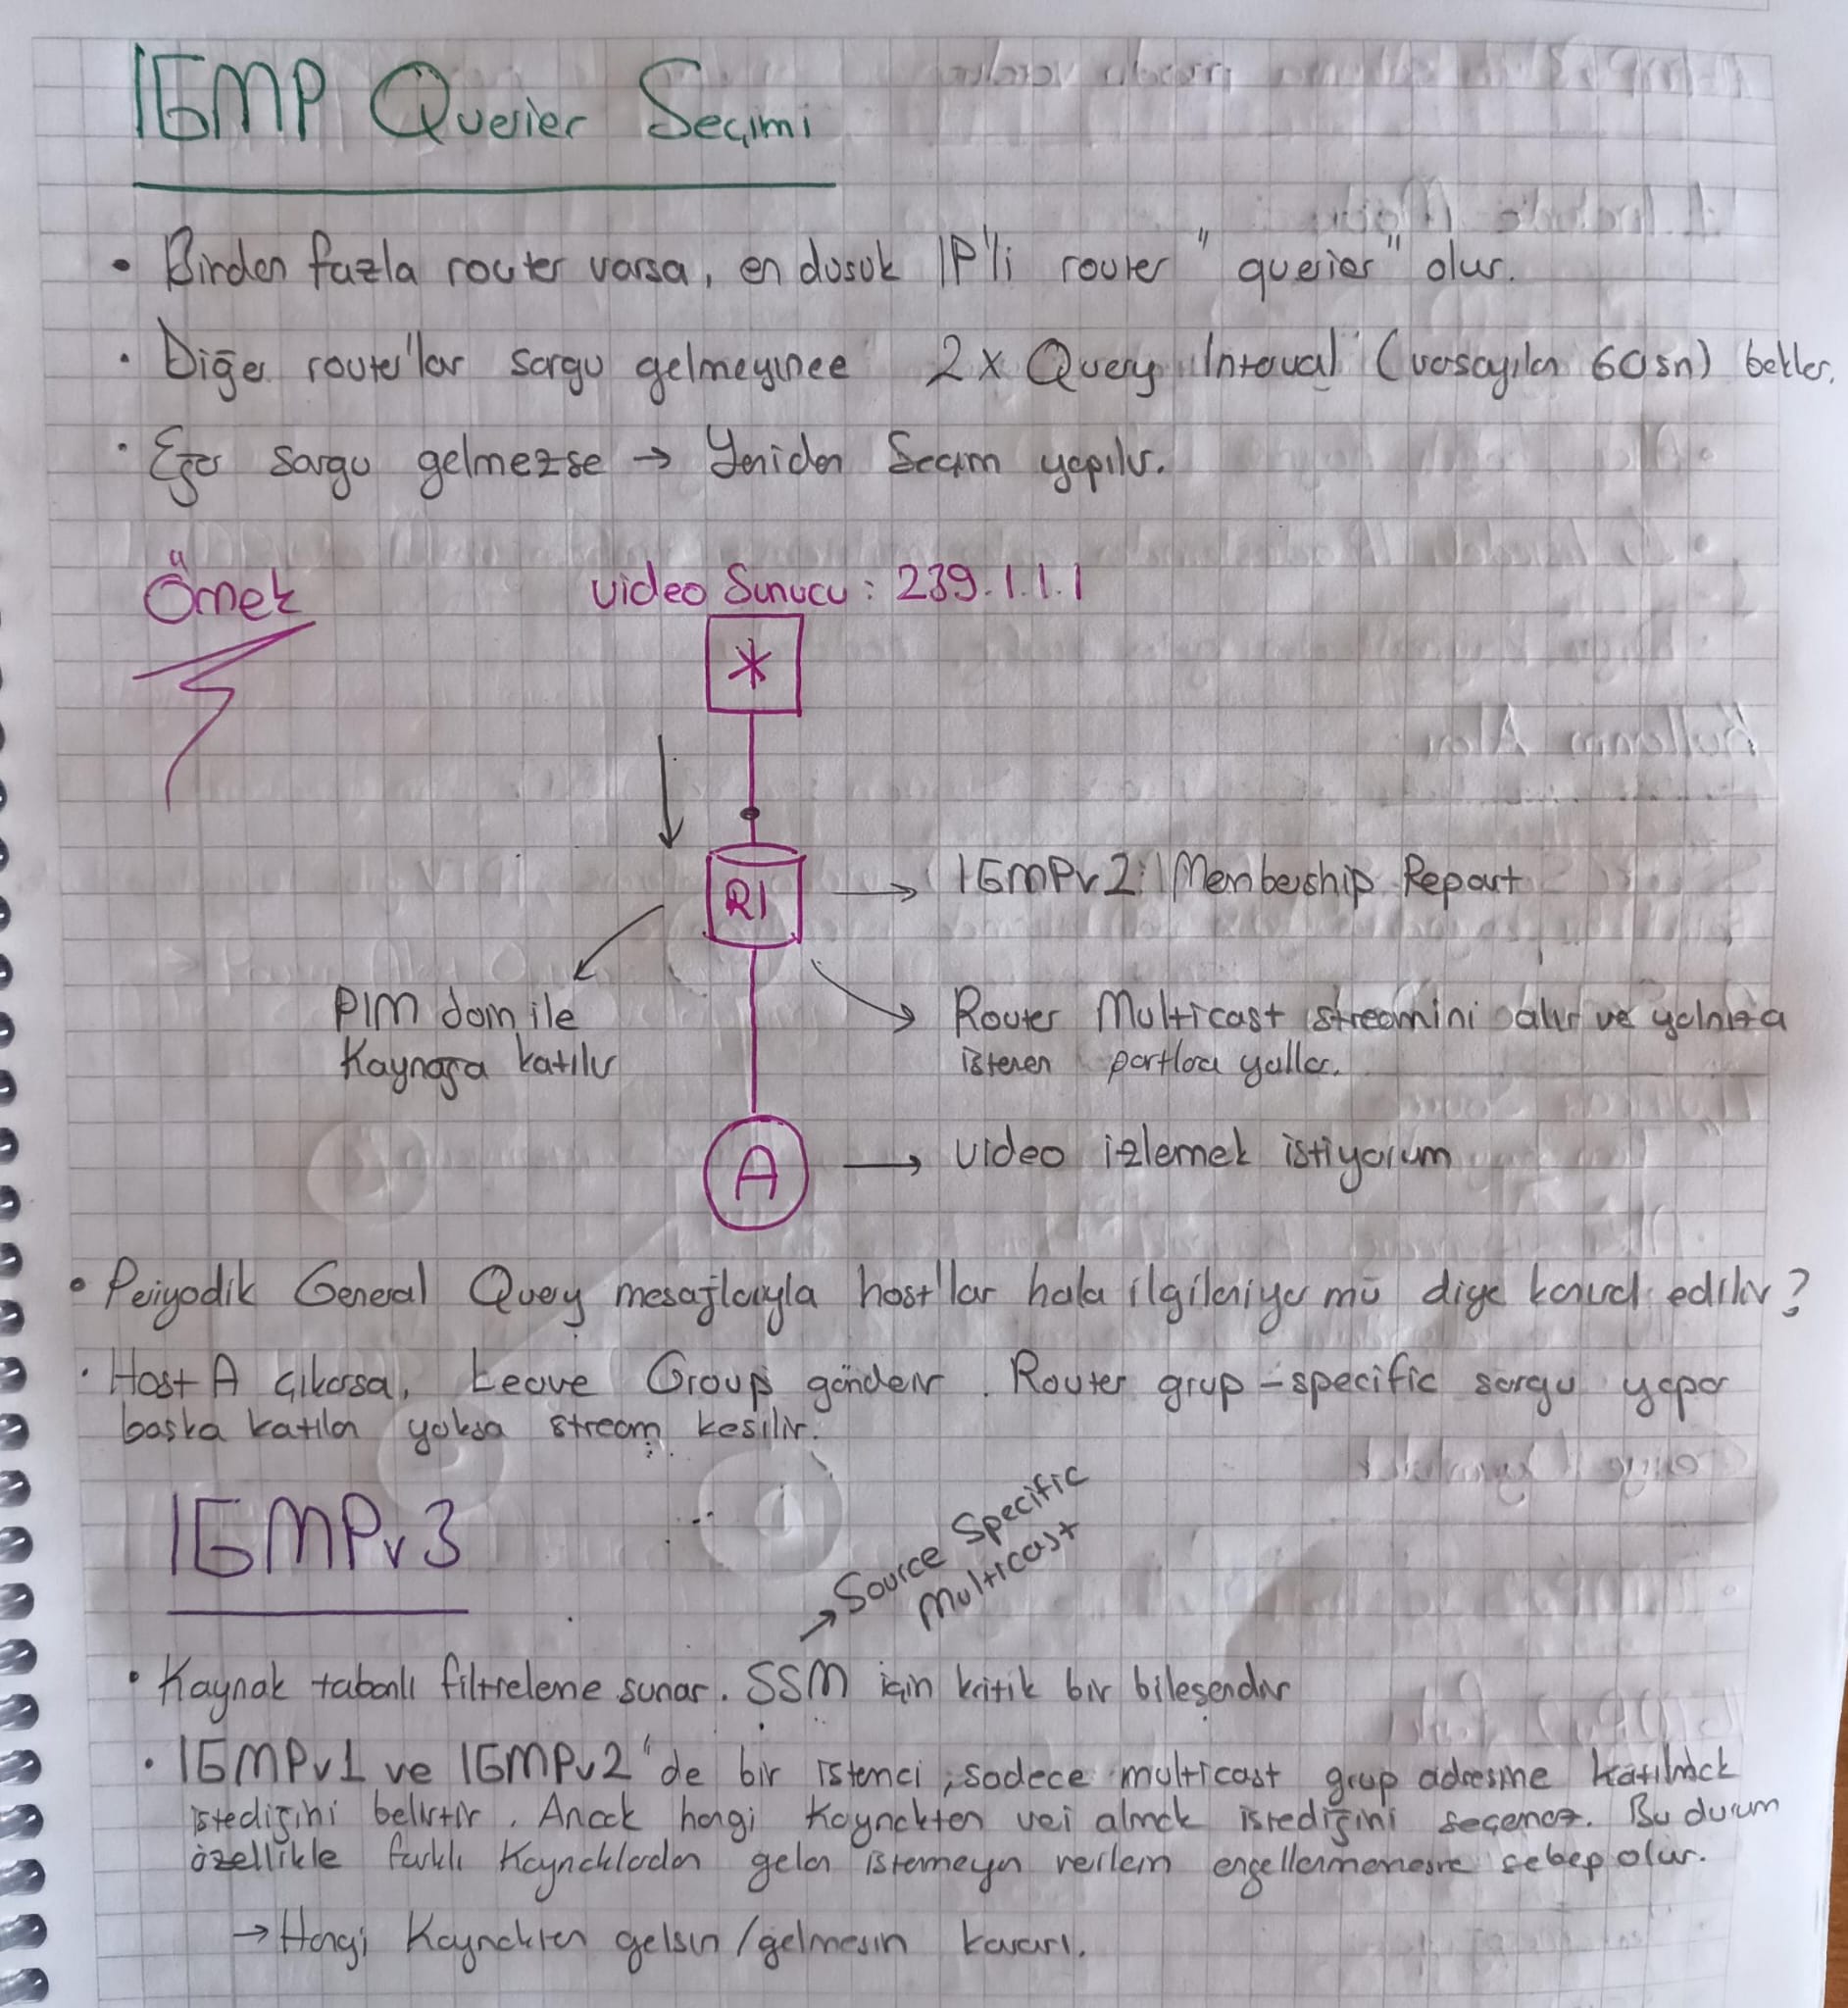 IGMP Querier Seçimi
• Birden fazla router varsa, en dusuk IP'li router "querier" olur.
• Diğer router'lar sorgu gelmeyince 2x Query Interval (varsayılan 60sn) bekler.
• Eğer sorgu gelmezse → Yeniden Seçim yapılır.
Örnek
video Sunucu : 239.1.1.1
*
R1
→ IGMPv2 Membership Report
PIM Join ile
Kaynağa katılır
Router Multicast streamini alır ve yalnızca
isteren portlara yollar.
A → video izlemek istiyorum
• Periyodik General Query mesajlarıyla host'lar hala ilgileniyor mu diye kontrol edilir?
• Host A çıkarsa, Leave Group gönderir. Router grup-specific sorgu yapar
baska katılan yoksa stream kesilir.
IGMPv3
→ Source Specific
Multicast
• Kaynak tabanlı filtreleme sunar. SSM için kritik bir bileşendir
• IGMPv1 ve IGMPv2'de bir istenci, sadece multicast grup adresine katılmak
istediğini belirtir. Ancak hangi Kaynaktan veri almak istediğini seçemez. Bu durum
özellikle farklı Kaynaklardan gelen istemeyen verilerin engellenmemesine sebep olur.
→ Hangi Kaynaktan gelsin/gelmesin kararı.